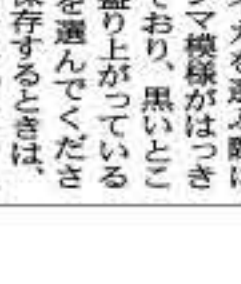 を選ぶ際は
マ模様がはっき
ており、黒いとこ
盛り上がっている
を選んでくださ
保存するときは、